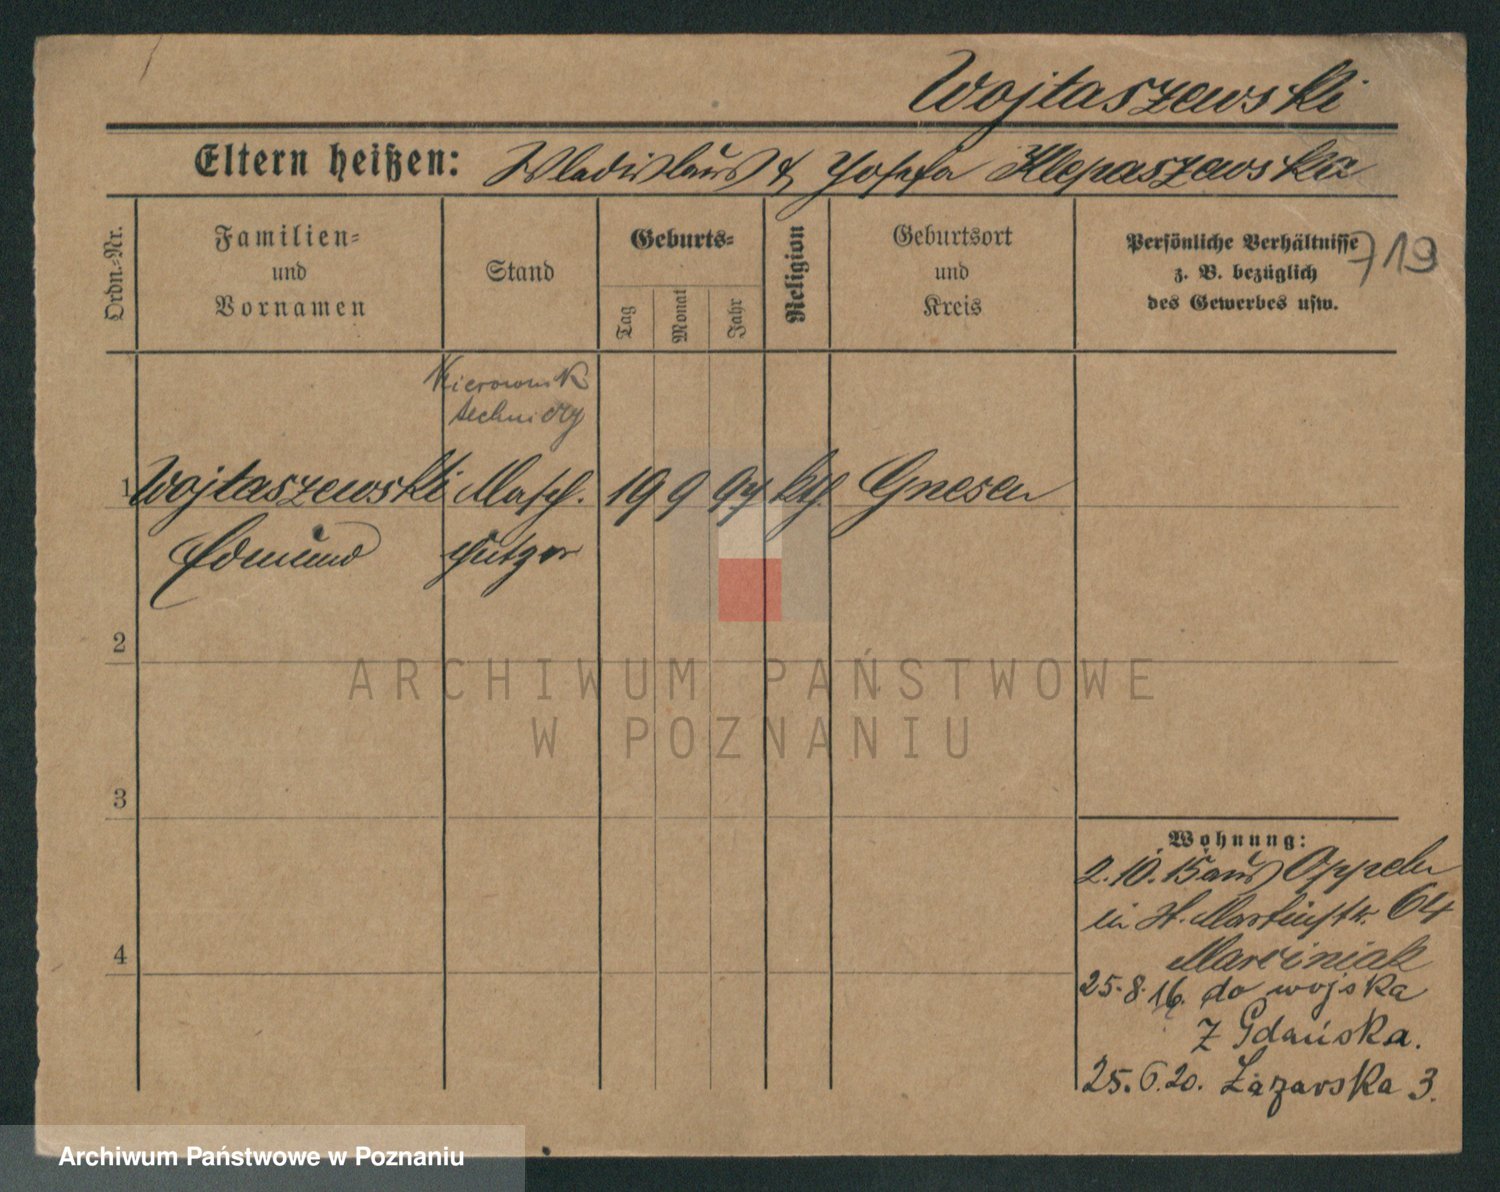 Wojtaszewski
Eltern heißen: Wladislaus & Josefa Klepaszewska
Ordn.-Nr.
Familien-
und
Vornamen
Stand
Geburts-
Tag
Monat
Jahr
Religion
Geburtsort
und
Kreis
Persönliche Verhältnisse
z. B. bezüglich
des Gewerbes usw.
719
Kierownik
techniczny
1 Wojtaszewski Masch. 19 9 97 kth. Gnesen
Edmund
2
3
4
Wohnung:
2.10.15 aus Oppeln
in St. Martinstr. 64
Marciniak
25.8.16. do wojska
z Gdańska.
25.6.20. Łazarska 3.
ARCHIWUM PAŃSTWOWE
W POZNANIU
Archiwum Państwowe w Poznaniu